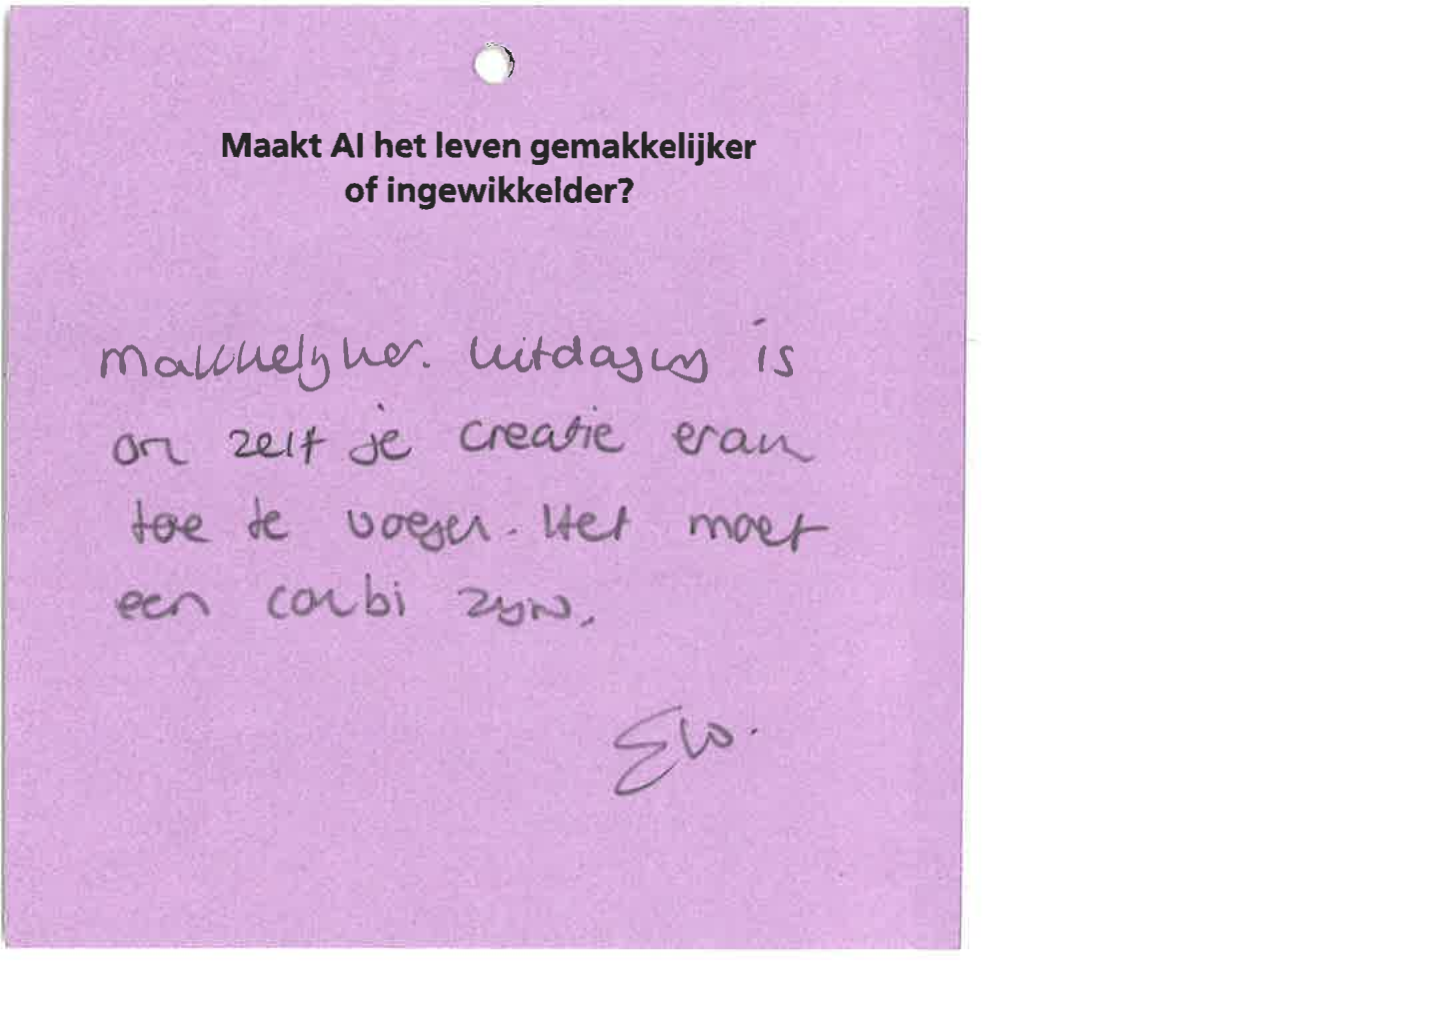 Maakt AI het leven gemakkelijker
of ingewikkelder?
makkelijker. Uitdaging is
om zelf je creatie eraan
toe te voegen. Het moet
een combi zijn.